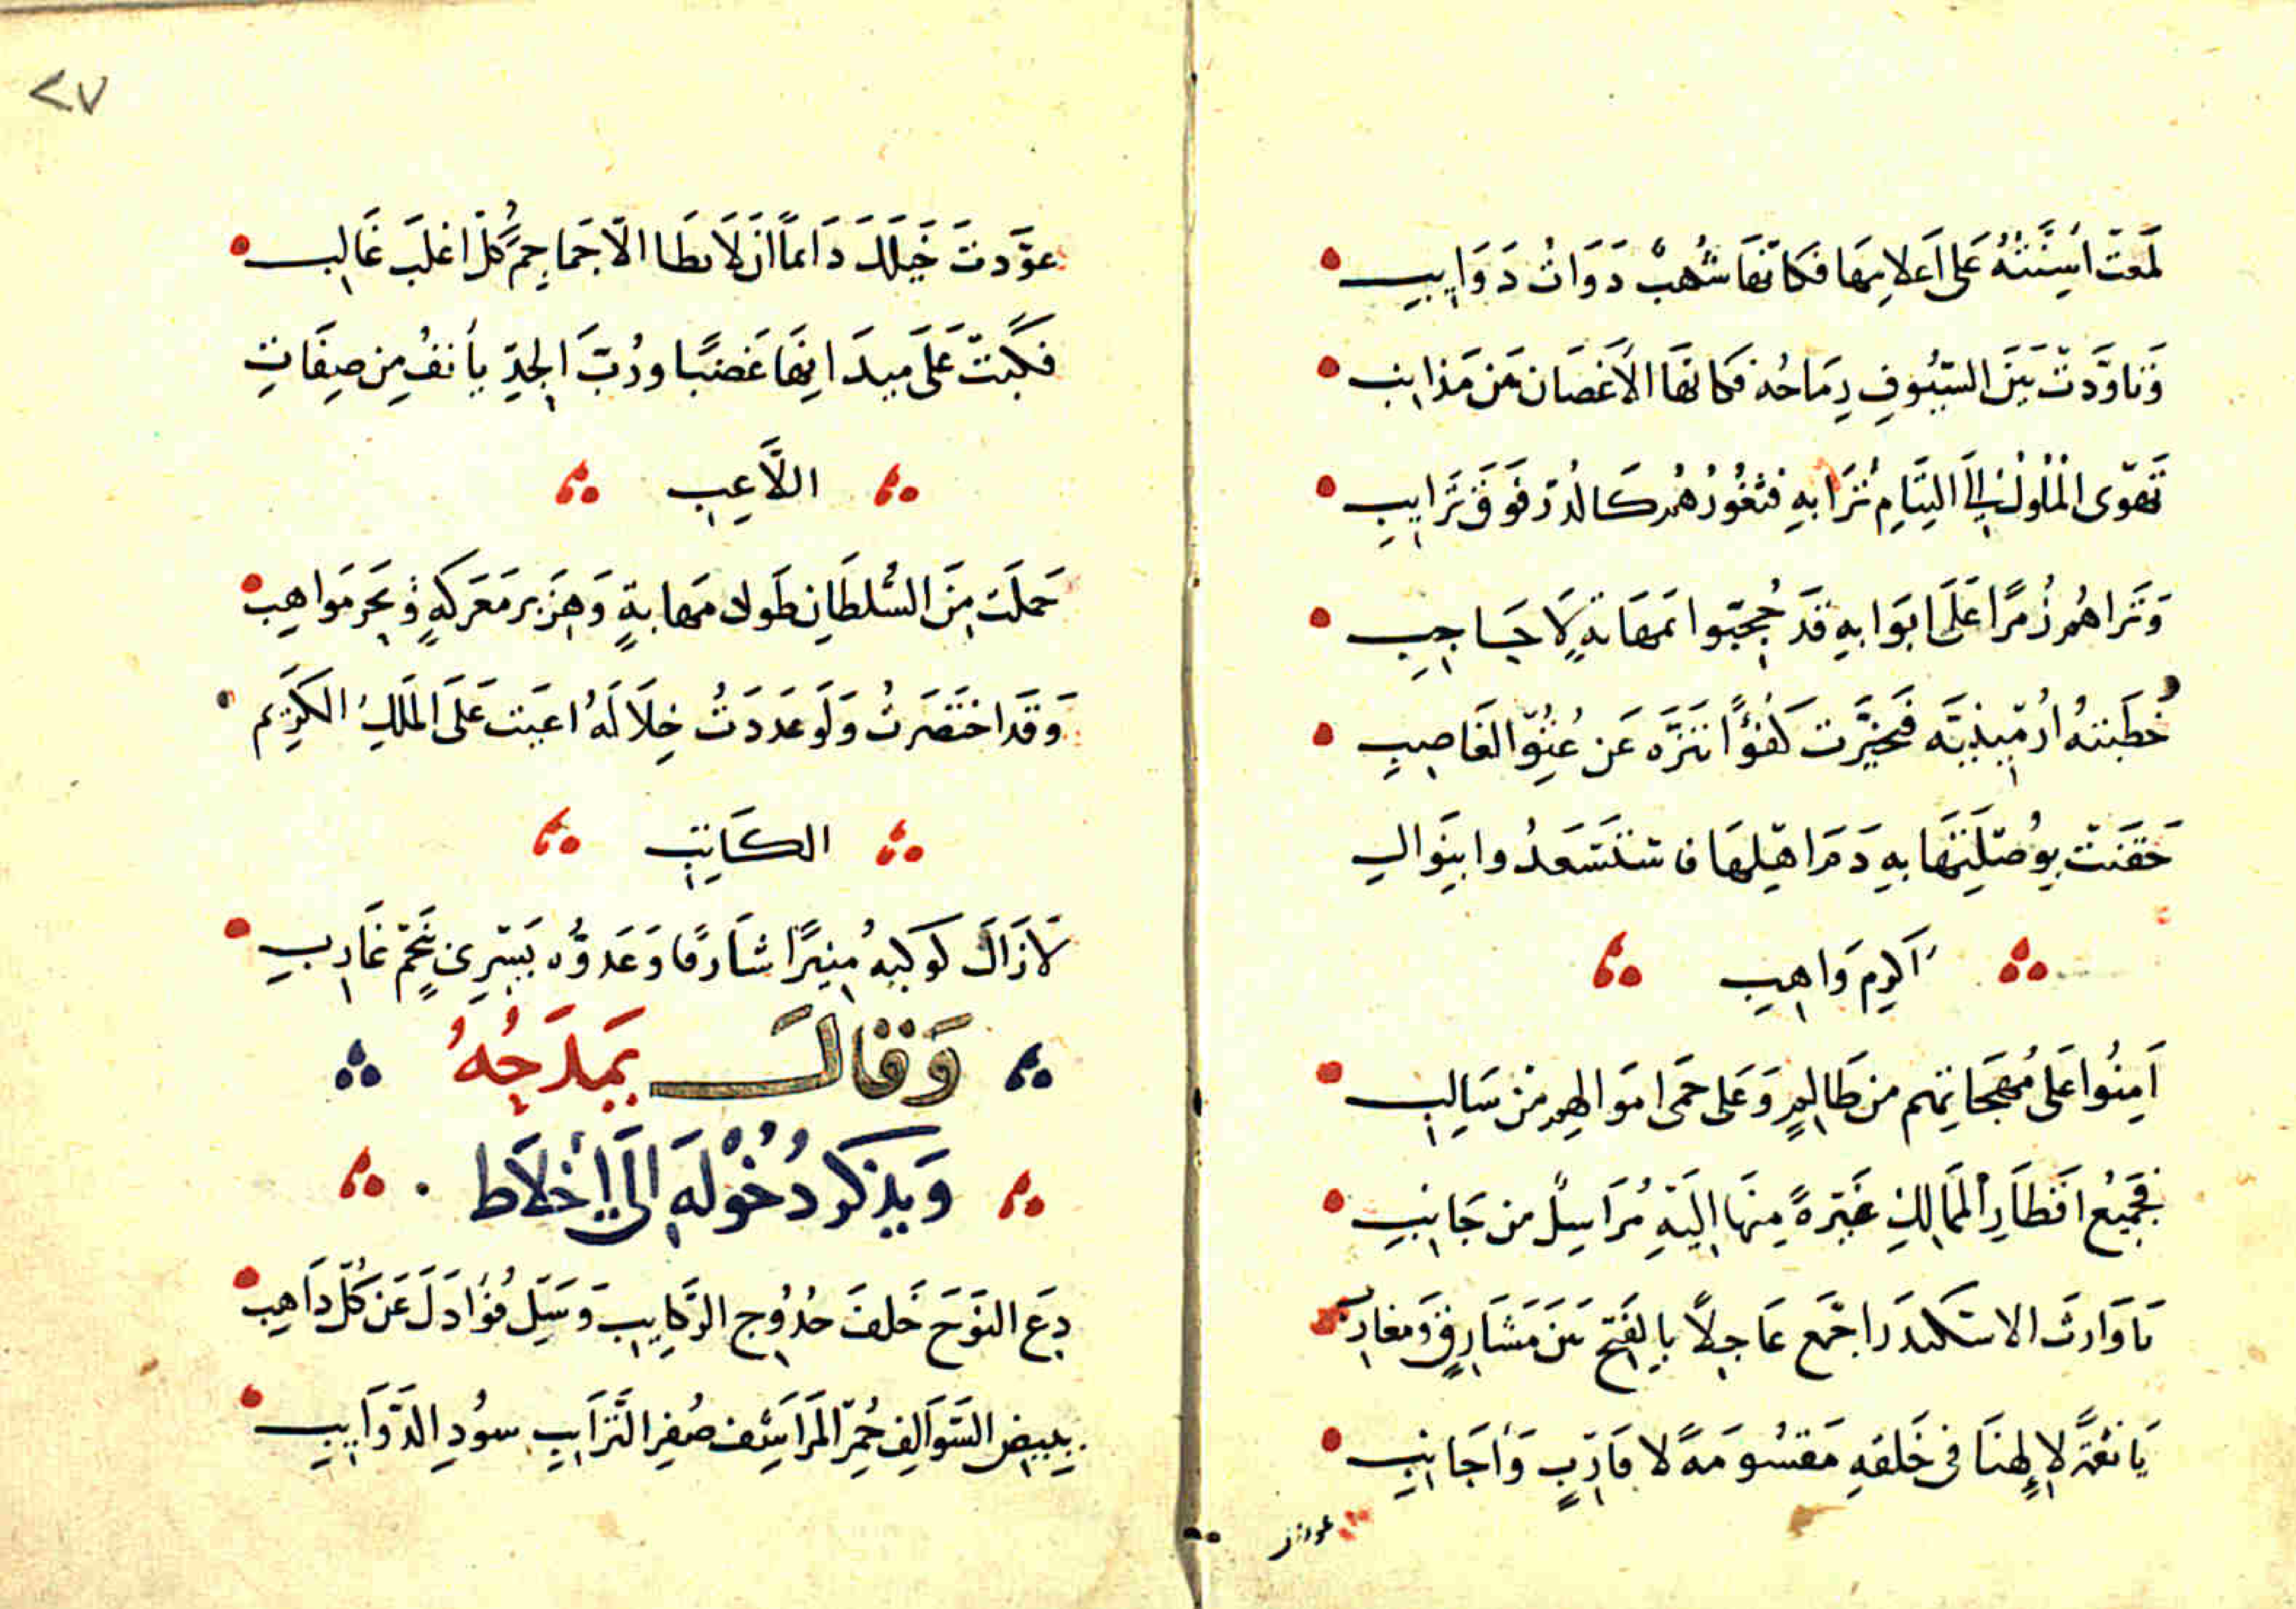 لَمَعَتْ اَسِنَّتُهُ عَلَى اَعلامِهَا فكَانّهَا شُهبٌ دَوَاتُ دَوَايبِ
وَتاوَّدتْ بَيَن السّيُوفِ رِمَاحُه فكانهَا الاَغصَان مَن مَذانب
تَهوَى المُلُوكُ اِلَى التِيَامِ تُرَابهِ فثغُورُهُمُ كَالدُرّ فَوقَ تَرَايبِ
وَتَراهُمُ زُمَرًا عَلَى ابوَابهِ قَد حُجِبّوا بمَهَابةٍ لاَ حَاجِبِ
خُطَبَتهُ فتخيَّرت كُفؤًا تَنَزّه عَن الغَاصِبِ
حَقَنَت بِوُصلَتِهَا بهِ دَمَ اهلِهَا وابنَوالِ
اَكرِم وَاهِبِ
اَمِنُوا عَلَى مُهَجَاتِهم من ظَالِمٍ وَعَلى حمَى اموَالهِم مِن سَالِبِ
فجَمَيعُ اقطَارِ الممَالِكِ غَيَرةً مِنهَا اِليَهِ مُرَاسِلٌ من جَانبِ
يَا وَارثَ الاسَكندَرَ اجَمع عَاجِلاً بِالفَتحِ بَين مَشَارِقٍ وَمغارِبِ
يَا نعَمةً لاِلهِنَا فى خَلقهِ مَقسُومَةً لاقَارِبٍ وَأجَانِبِ
عودت
٢٧
عوَّدتَ خَيَلكَ دَائماً ان لاَ تطَا الاّ جَماجِمَ كُلّ اغلَبَ غَالِب
فكَبَتْ عَلَى ميدَانِهَا غَضبًا ورُبَّ الجِدِّ يأنفُ مِن صِفَاتِ
اللاَّعِبِ
حَمَلَت مِنَ السُّلطَانِ طَولا مهَابةٍ وَهِزَبر مَعَركَهٍ وبَحر مَوَاهِب
وَقَد اختَصَرتُ وَلَو عَدَدَتُ خِلاَلَهُ اعيَت عَلَى المَلكِ الكَريَم
الكَاتِبِ
لاَزَالَ كوكبهُ مُنِيرًا شَارقًا وَعَدوُّه يَسِرى بنَجمٍ غَارِبِ
وَقَالَ يَمدَحُهُ
وَيذكر دُخُولَهِ اِلَى اِخلاَط
دِعَ النَوحَ خَلفَ حُدُوجِ الرَّكايبِ وَسَلّ فُؤَادَكَ عَن كُلّ ذَاهِب
بِبيضِ السَوَالِفِ حُمرِ المَراشِف صُفرِ التَرَايبِ سوُدِ الذَوَايبِ